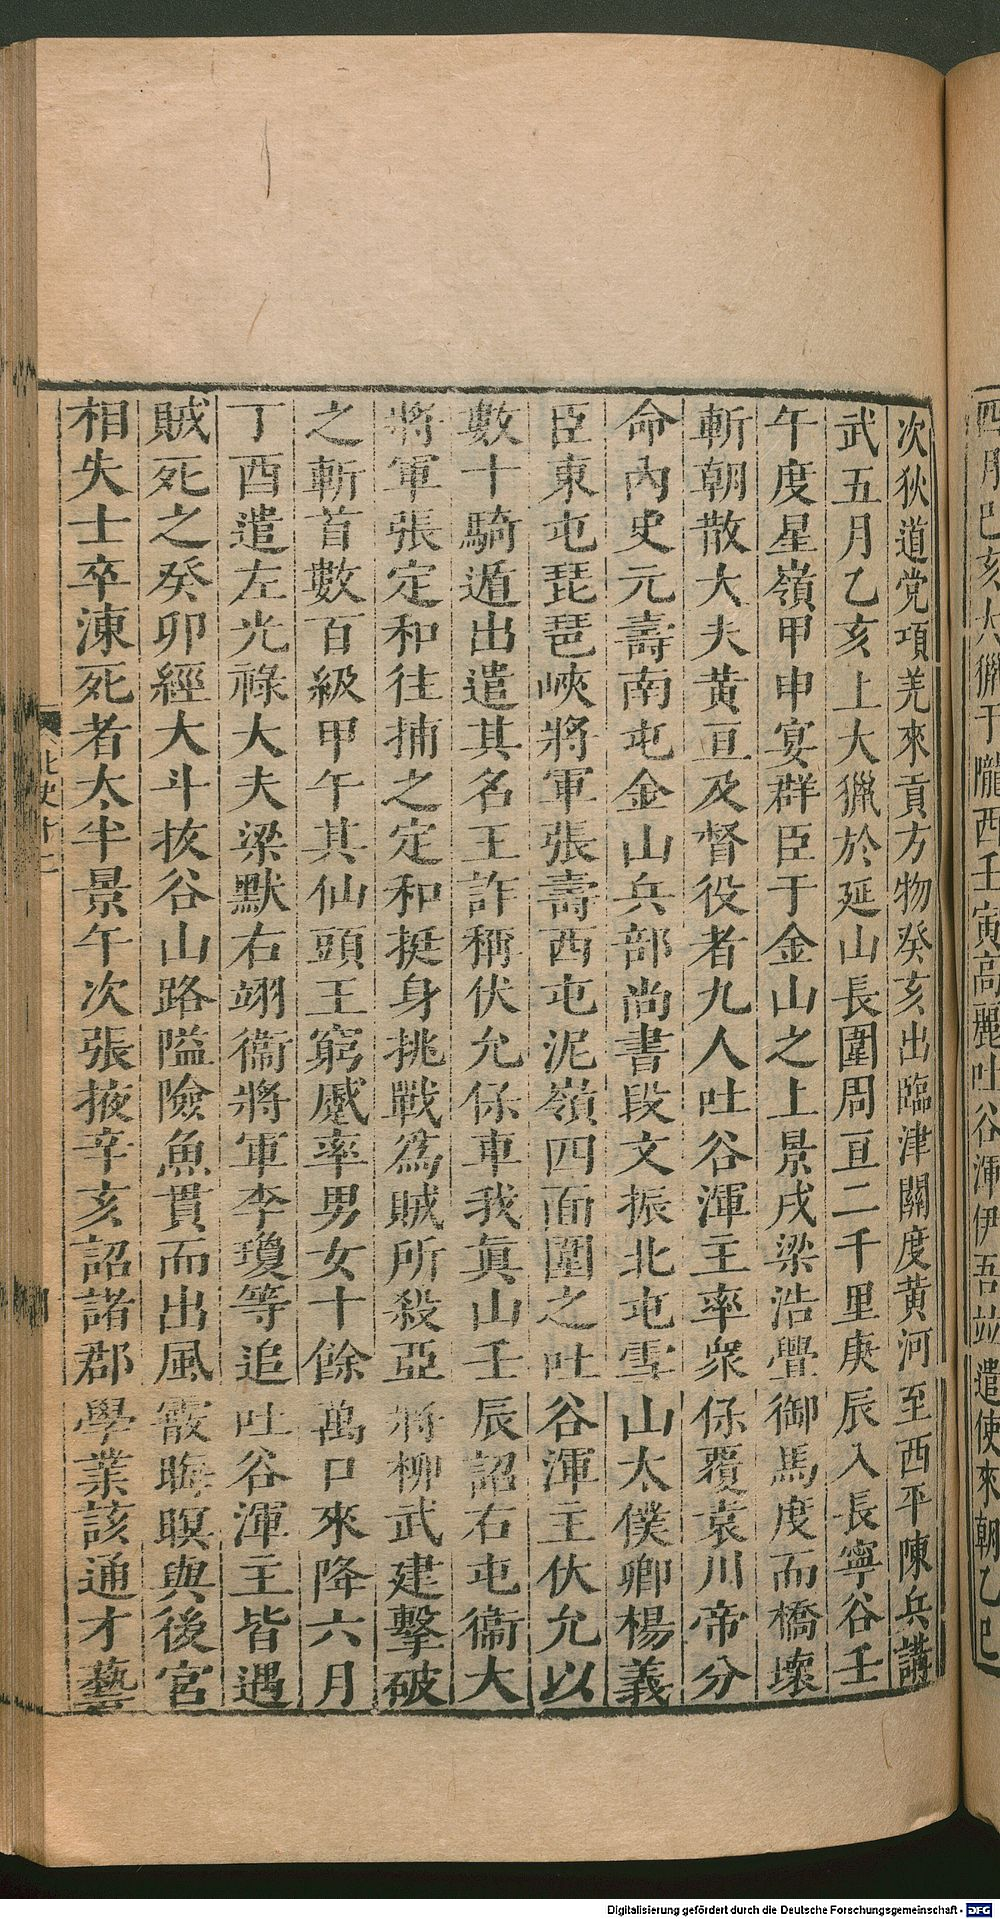 四月己亥大獵于隴西壬寅高麗吐谷渾伊吾竝遣使來朝乙巳
次狄道党項羌來貢方物癸亥出臨津關度黄河至西平陳兵講
武五月乙亥上大獵於延山長圍周亘二千里庚辰入長寧谷壬
午度星嶺甲申宴群臣于金山之上景戌梁浩亹御馬度而橋壞
斬朝散大夫黄亘及督役者九人吐谷渾主率衆保覆袁川帝分
命內史元壽南屯金山兵部尚書段文振北屯雪山太僕卿楊義
臣東屯琵琶峽將軍張壽西屯泥嶺四面圍之吐谷渾主伏允以
數十騎遁出遣其名王詐稱伏允保車我眞山壬辰詔右屯衞大
將軍張定和往捕之定和挺身挑戰為賊所殺亞將柳武建擊破
之斬首數百級甲午其仙頭王窮蹙率男女十餘萬口來降六月
丁酉遣左光祿大夫梁默右翊衞將軍李瓊等追吐谷渾主皆遇
賊死之癸卯經大斗拔谷山路隘險魚貫而出風霰晦暝與後宮
相失士卒凍死者太半景午次張掖辛亥詔諸郡學業該通才藝
北史十二
Digitalisierung gefördert durch die Deutsche Forschungsgemeinschaft - DFG